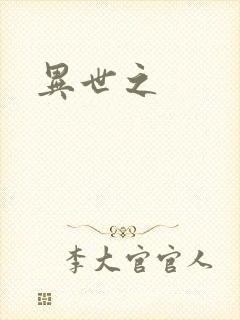 異世之
李大官官人